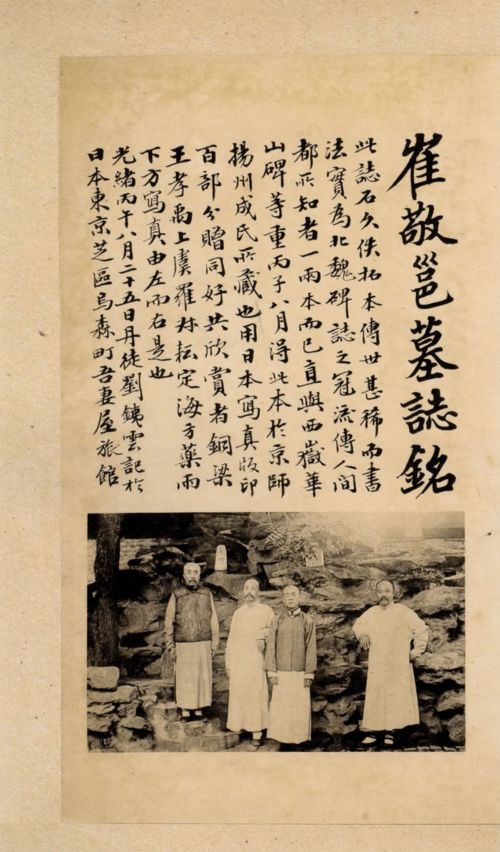 崔敬邕墓誌銘
此誌石久佚拓本傳世甚稀而書
法實為北魏碑誌之冠流傳人間
都所知者一兩本而已直與西嶽華
山碑等重丙子八月得此本於京師
揚州成氏所藏也用日本寫真版印
百部分贈同好共欣賞者銅梁
王孝禹上虞羅叔耘定海方藥雨
下方寫真由左而右是也
光緒丙午八月二十五日丹徒劉銕雲記於
日本東京芝區烏森町吾妻屋旅館